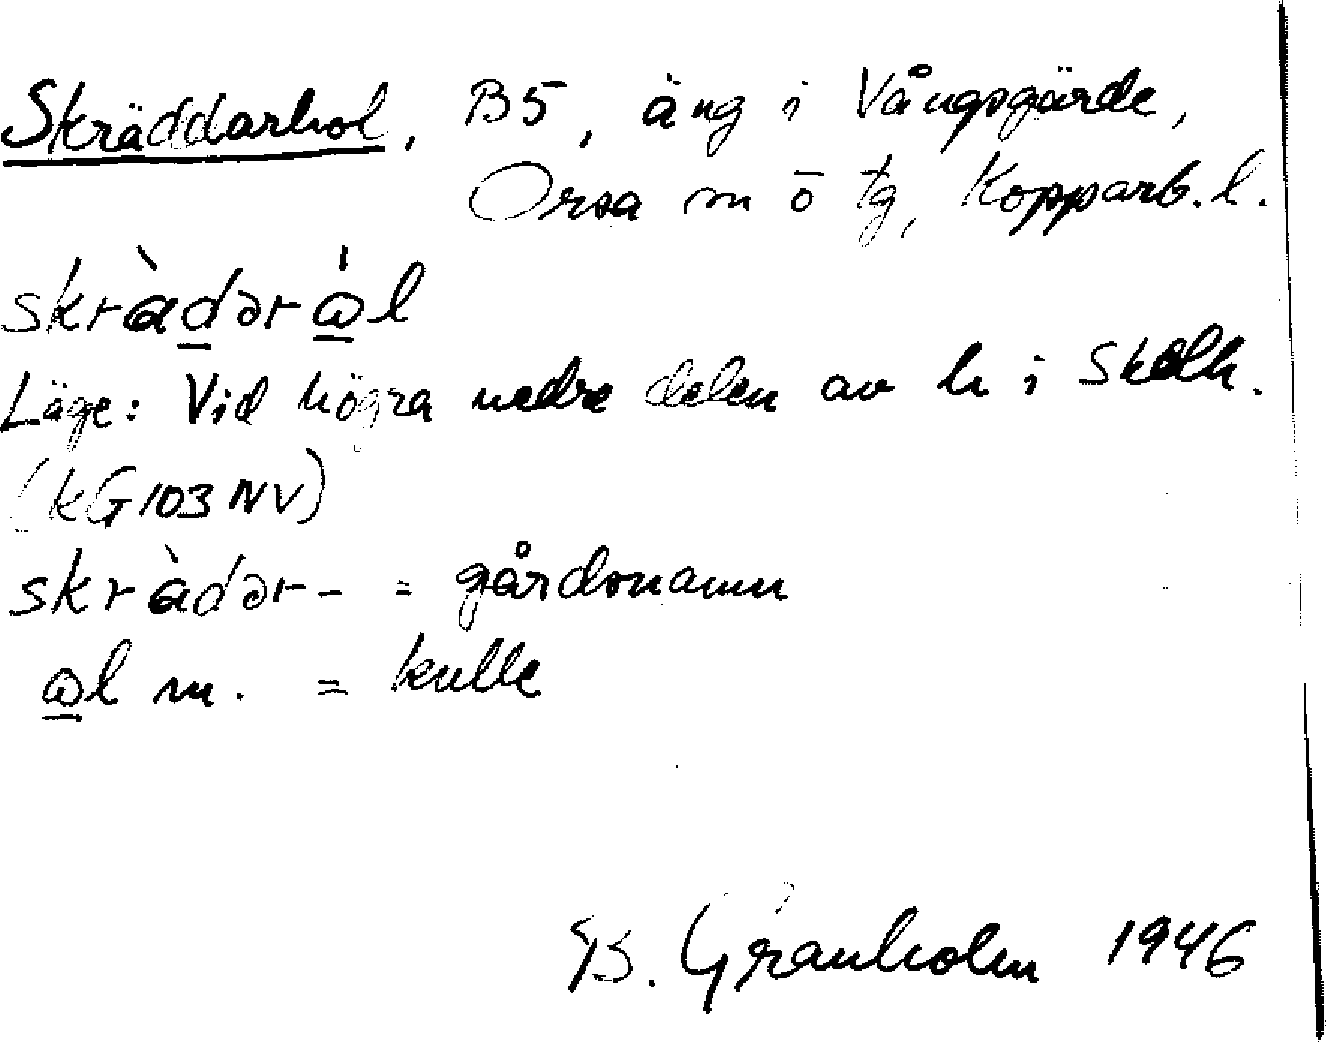 Skräddarhol, B5, äng i Vångsgärde,
Orsa sn ö tg, Kopparb. l.
skràdərὼl
Läge: Vid högra nedre delen av h i Skolh.
(kG103NV)
skràdər- = gårdsnamn
ωl m. = kulle
B. Granholm 1946